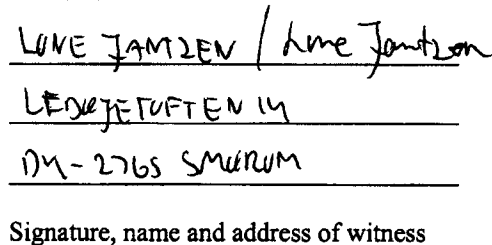 LONE JANTZEN / Lone Jantzen
LEDØJETOFTEN 14
DK-2765 SMØRUM
Signature, name and address of witness